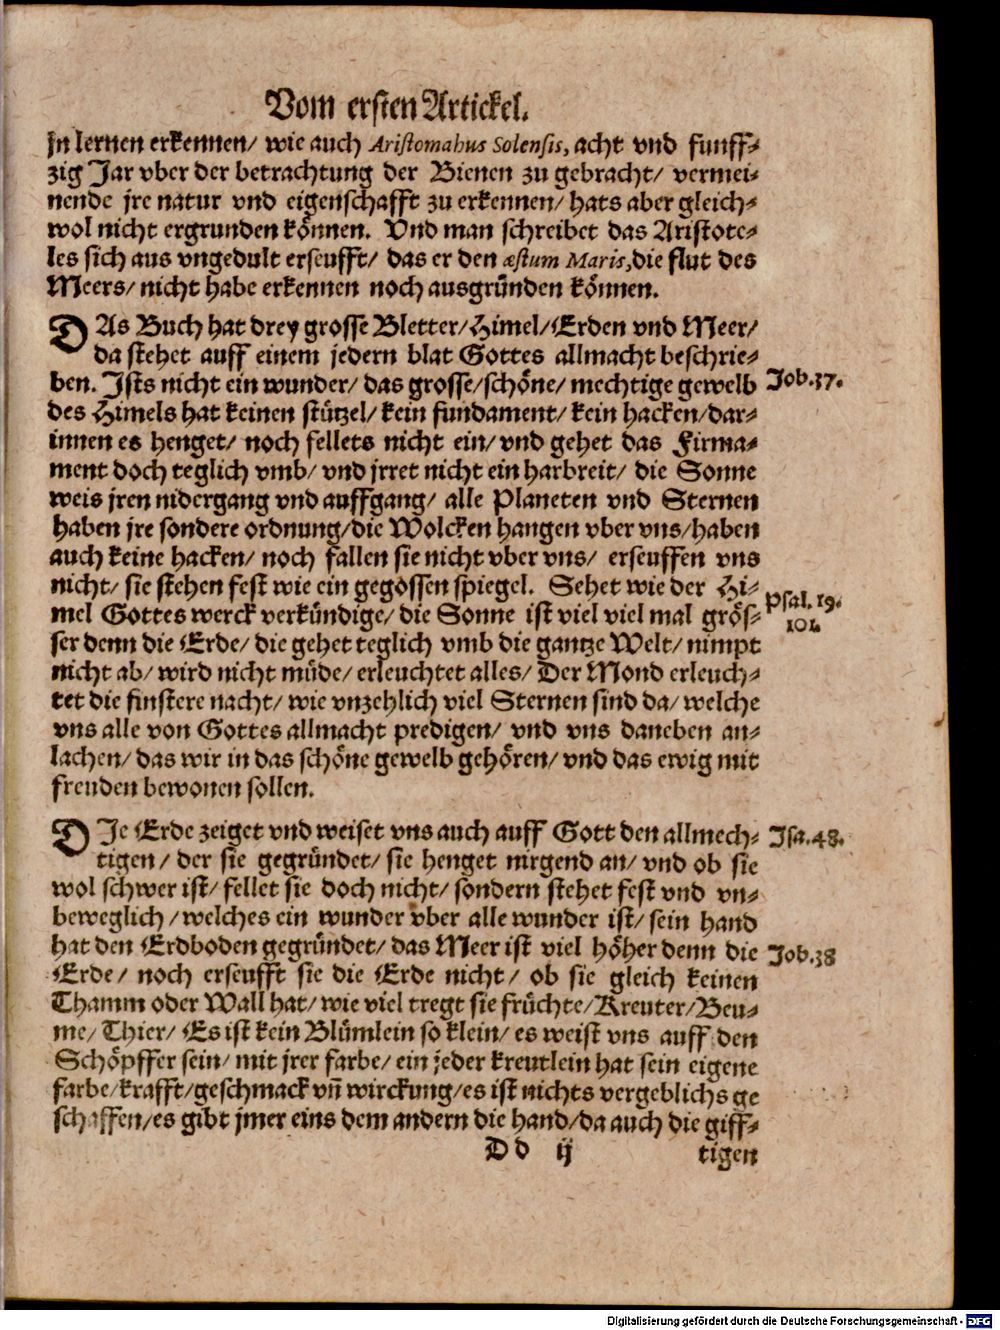 Vom ersten Artickel.
jn lernen erkennen/ wie auch Aristomahus Solensis, acht vnd funff-
zig Jar vber der betrachtung der Bienen zu gebracht/ vermei-
nende jre natur vnd eigenschafft zu erkennen/ hats aber gleich-
wol nicht ergrunden können. Vnd man schreibet das Aristote-
les sich aus vngedult erseufft/ das er den æstum Maris, die flut des
Meers/ nicht habe erkennen noch ausgründen können.
DAs Buch hat drey grosse Bletter/ Himel/ Erden vnd Meer/
da stehet auff einem jedern blat Gottes allmacht beschrie-
ben. Ists nicht ein wunder/ das grosse/ schöne/ mechtige gewelb
Job.37.
des Himels hat keinen stützel/ kein fundament/ kein hacken/ dar-
innen es henget/ noch fellets nicht ein/ vnd gehet das Firma-
ment doch teglich vmb/ vnd jrret nicht ein harbreit/ die Sonne
weis jren nidergang vnd auffgang/ alle Planeten vnd Sternen
haben jre sondere ordnung/ die Wolcken hangen vber vns/ haben
auch keine hacken/ noch fallen sie nicht vber vns/ erseuffen vns
nicht/ sie stehen fest wie ein gegossen spiegel. Sehet wie der Hi-
Psal.19.
mel Gottes werck verkündige/ die Sonne ist viel viel mal grös-
ser denn die Erde/ die gehet teglich vmb die gantze Welt/ nimpt
nicht ab/ wird nicht müde/ erleuchtet alles/ Der Mond erleuch-
tet die finstere nacht/ wie vnzehlich viel Sternen sind da/ welche
vns alle von Gottes allmacht predigen/ vnd vns daneben an-
lachen/ das wir in das schöne gewelb gehören/ vnd das ewig mit
freuden bewonen sollen.
DIe Erde zeiget vnd weiset vns auch auff Gott den allmech-
Isa.48.
tigen/ der sie gegründet/ sie henget nirgend an/ vnd ob sie
wol schwer ist/ fellet sie doch nicht/ sondern stehet fest vnd vn-
beweglich/ welches ein wunder vber alle wunder ist/ sein hand
hat den Erdboden gegründet/ das Meer ist viel höher denn die
Job.38
Erde/ noch erseufft sie die Erde nicht/ ob sie gleich keinen
Thamm oder Wall hat/ wie viel tregt sie früchte/ Kreuter/ Beu-
me/ Thier/ Es ist kein Blümlein so klein/ es weist vns auff den
Schöpffer sein/ mit jrer farbe/ ein jeder kreutlein hat sein eigene
farbe/ krafft/ geschmack vn̄ wirckung/ es ist nichts vergeblichs ge
schaffen/ es gibt jmer eins dem andern die hand/ da auch die giff-
Dd ij
tigen
Digitalisierung gefördert durch die Deutsche Forschungsgemeinschaft - DFG